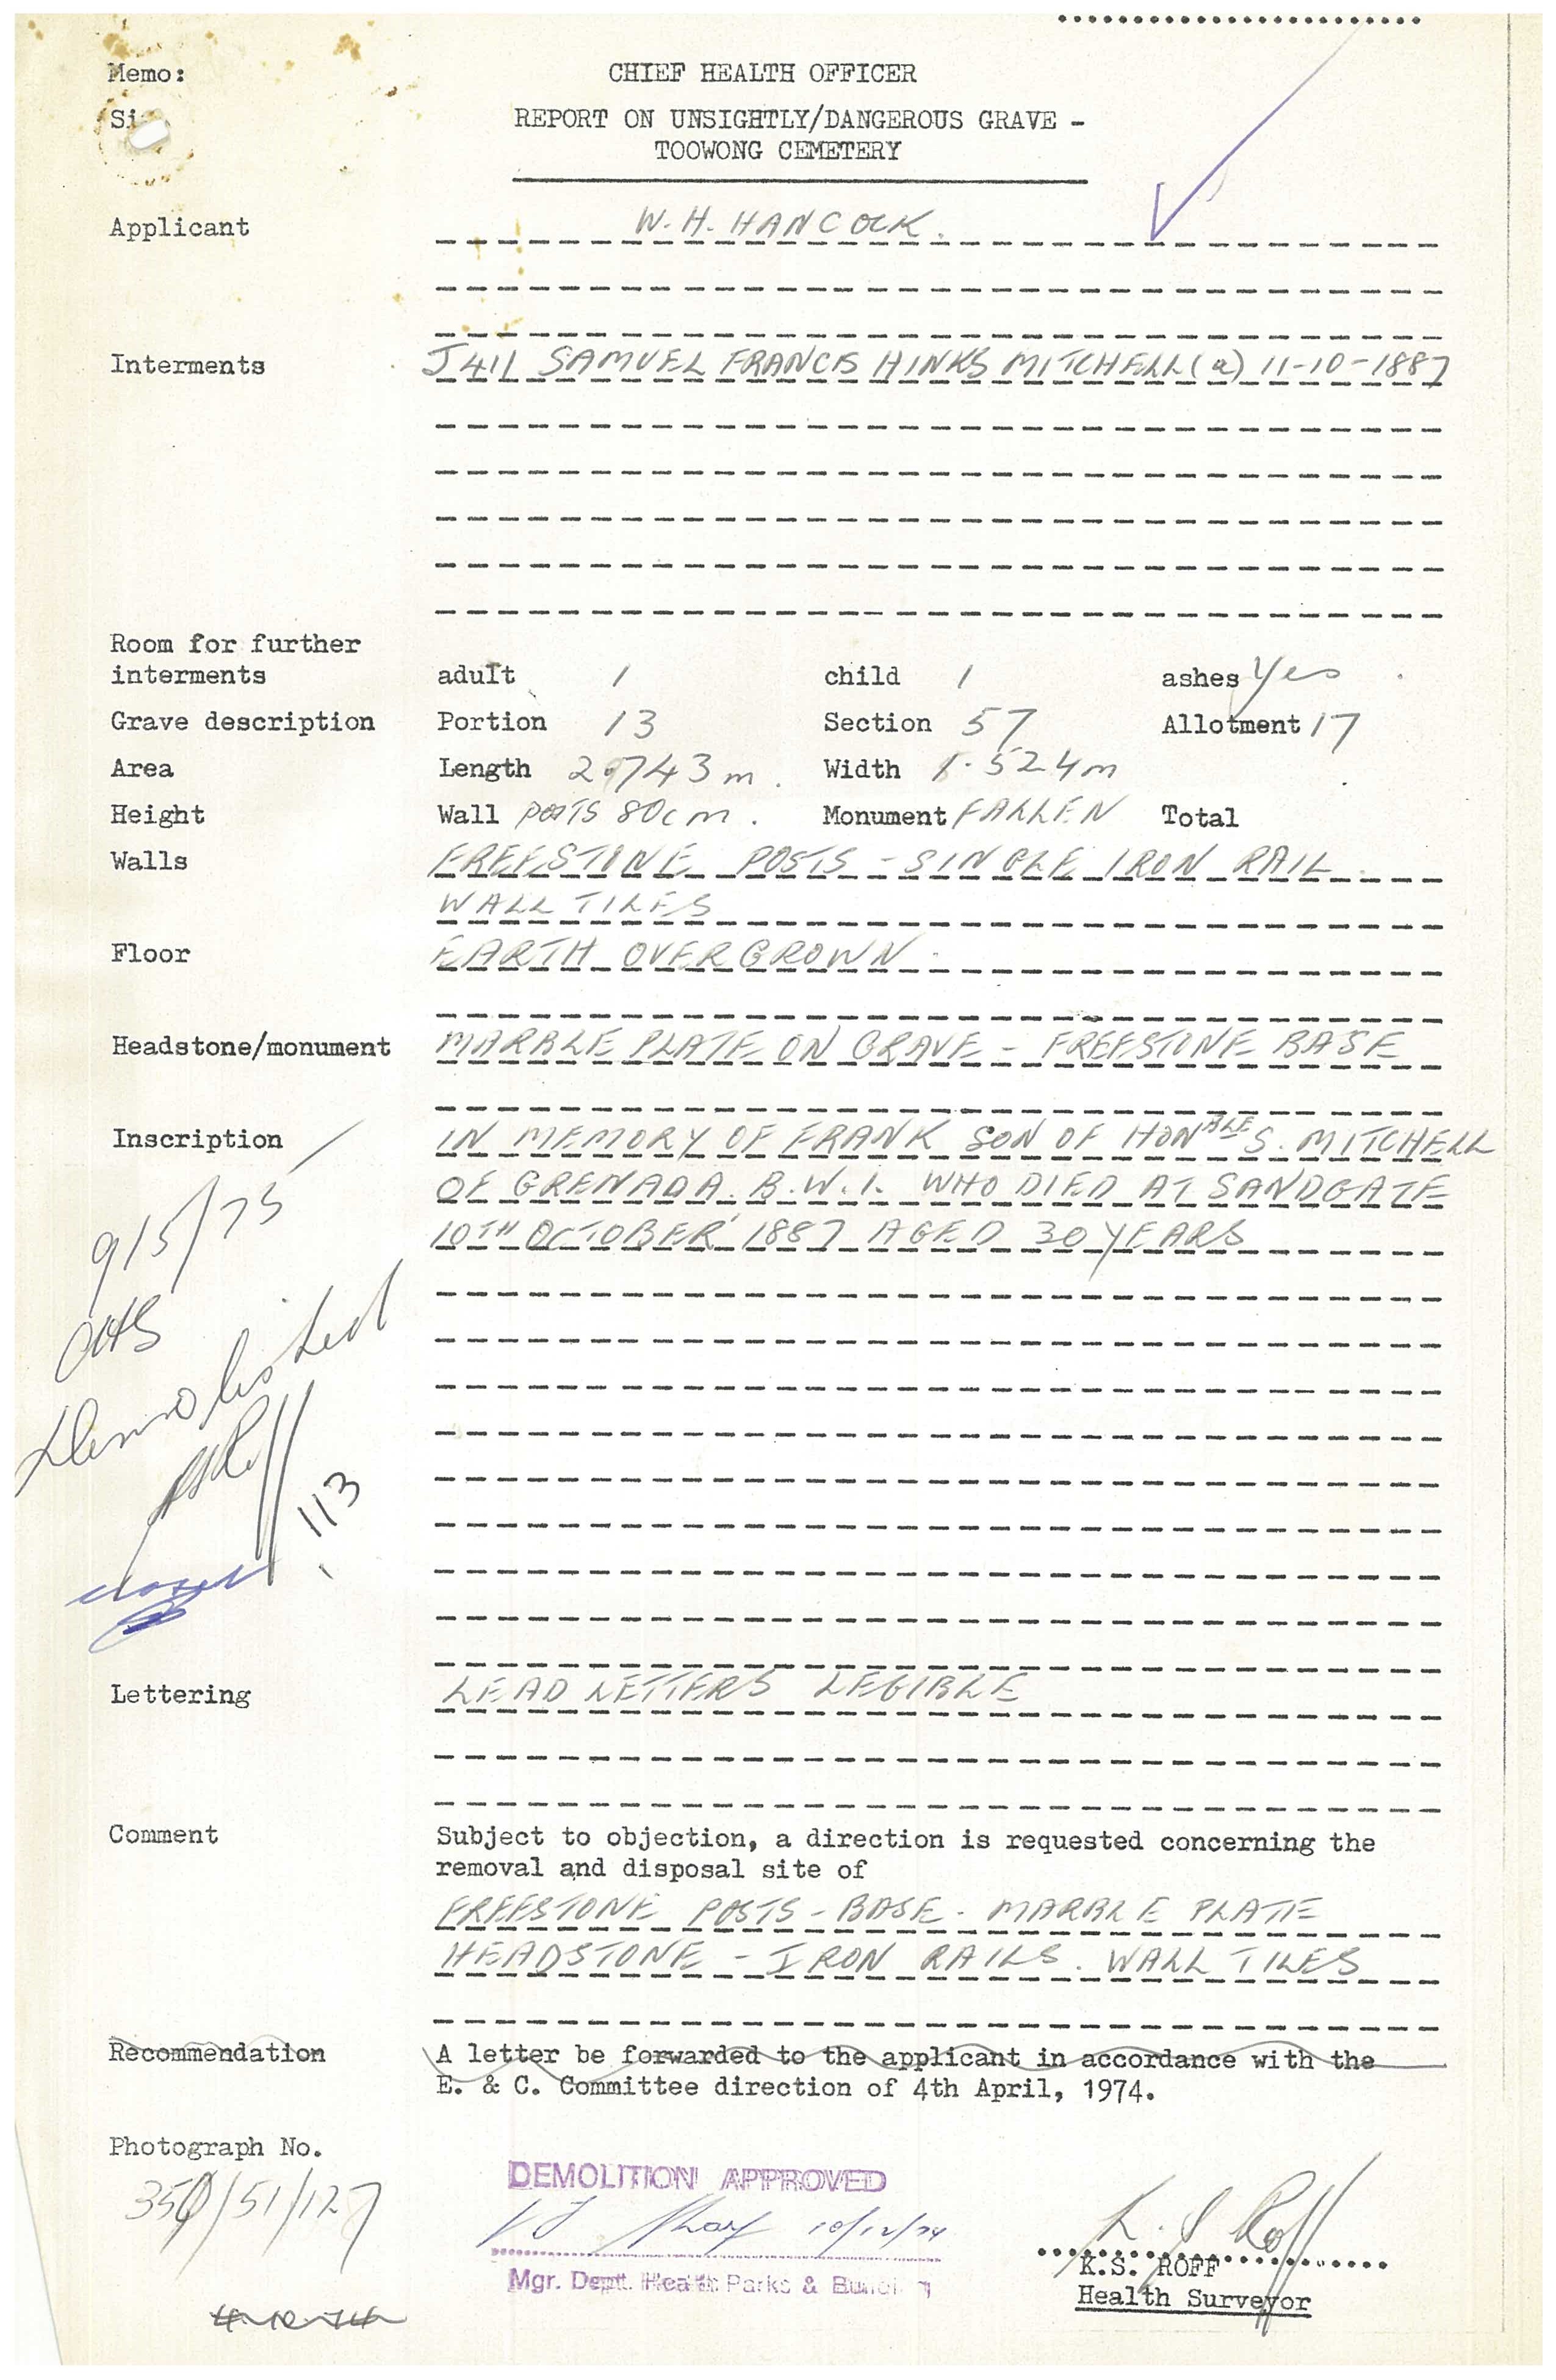 Memo: CHIEF HEALTH OFFICER
REPORT ON UNSIGHTLY/DANGEROUS GRAVE -
TOOWONG CEMETERY
Applicant W. H. HANCOCK.
Interments J411 SAMUEL FRANCIS HINKS MITCHELL (a) 11-10-1887
Room for further
interments adult 1 child 1 ashes Yes
Grave description Portion 13 Section 57 Allotment 17
Area Length 2.743m. Width 1.524m
Height Wall POSTS 80cm. Monument FALLEN Total
Walls FREESTONE POSTS - SINGLE IRON RAIL
WALL TILES
Floor EARTH OVERGROWN
Headstone/monument MARBLE PLATE ON GRAVE - FREESTONE BASE
Inscription IN MEMORY OF FRANK SON OF HONABLE S. MITCHELL
OF GRENADA. B.W.I. WHO DIED AT SANDGATE
10TH OCTOBER 1887 AGED 30 YEARS
9/5/75
Demolished
113
Lettering LEAD LETTERS LEGIBLE
Comment Subject to objection, a direction is requested concerning the
removal and disposal site of
FREESTONE POSTS - BASE - MARBLE PLATE
HEADSTONE - IRON RAILS. WALL TILES
Recommendation A letter be forwarded to the applicant in accordance with the
E. & C. Committee direction of 4th April, 1974.
Photograph No.
350/51/127
DEMOLITION APPROVED
10/12/74
Mgr. Dept. Health Parks &
K.S. ROFF
Health Surveyor
4-12-74